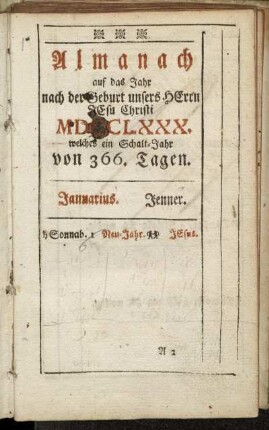 Almanach
auf das Jahr
nach der Geburt unsers HErrn
JEsu Christi
MDCCLXXX.
welches ein Schalt-Jahr
von 366. Tagen.
Januarius. Jenner.
♄ Sonnab. 1 Neu-Jahr. JEsus.
A 2